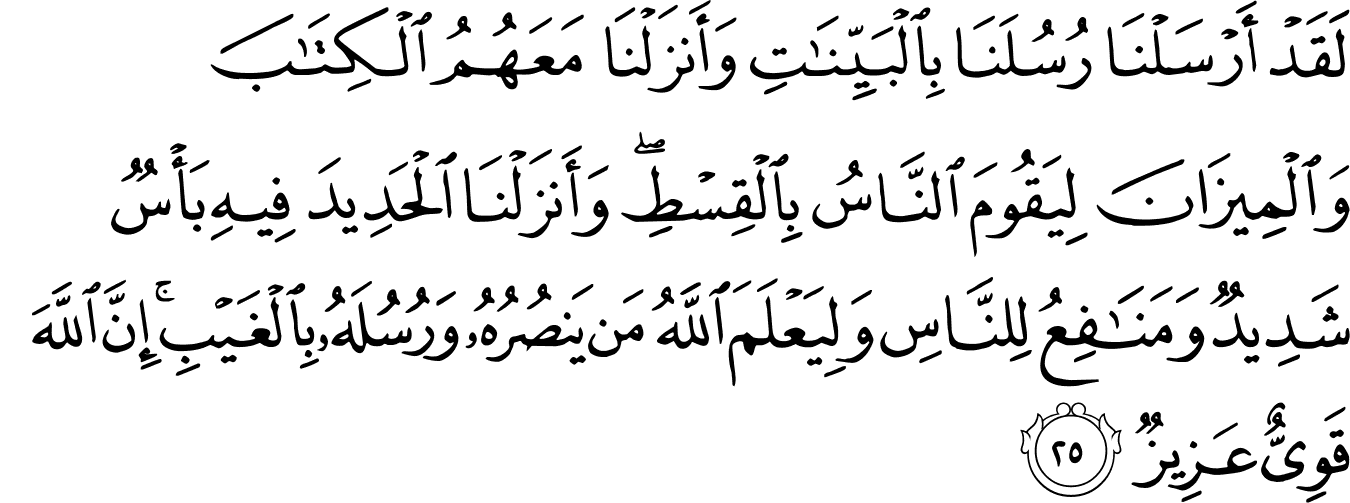 لَقَدْ أَرْسَلْنَا رُسُلَنَا بِٱلْبَيِّنَٰتِ وَأَنزَلْنَا مَعَهُمُ ٱلْكِتَٰبَ
وَٱلْمِيزَانَ لِيَقُومَ ٱلنَّاسُ بِٱلْقِسْطِ ۖ وَأَنزَلْنَا ٱلْحَدِيدَ فِيهِ بَأْسٌ
شَدِيدٌ وَمَنَٰفِعُ لِلنَّاسِ وَلِيَعْلَمَ ٱللَّهُ مَن يَنصُرُهُۥ وَرُسُلَهُۥ بِٱلْغَيْبِ ۚ إِنَّ ٱللَّهَ
قَوِىٌّ عَزِيزٌ ٢٥